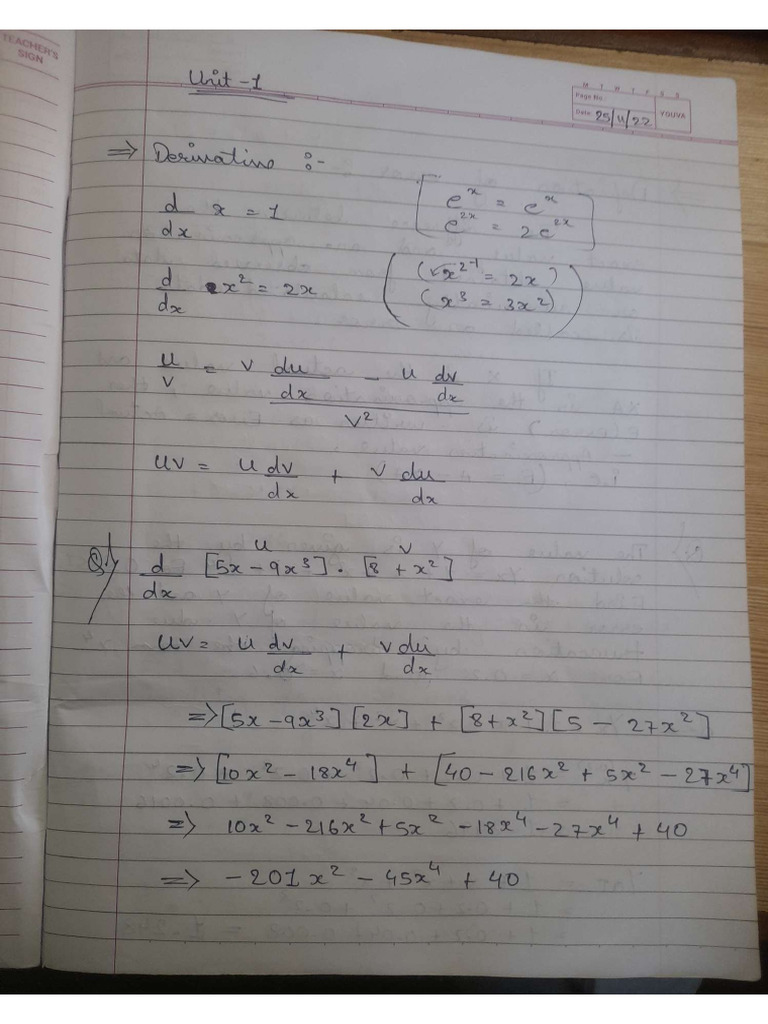 TEACHER'S
SIGN
Unit-1
M T W T F S S
Page No.:
Date: 25/11/22
YOUVA
⇒ Derivative :-
d/dx x = 1
[e^x = e^x
e^2x = 2e^2x]
d/dx x² = 2x
(x^2-1 = 2x)
(x³ = 3x²)
u/v = (v du/dx - u dv/dx)/v²
uv = u dv/dx + v du/dx
u v
Q1) d/dx [5x - 9x³] · [8 + x²]
uv = u dv/dx + v du/dx
⇒ [5x - 9x³] [2x] + [8 + x²] [5 - 27x²]
⇒ [10x² - 18x⁴] + [40 - 216x² + 5x² - 27x⁴]
⇒ 10x² - 216x² + 5x² - 18x⁴ - 27x⁴ + 40
⇒ -201x² - 45x⁴ + 40